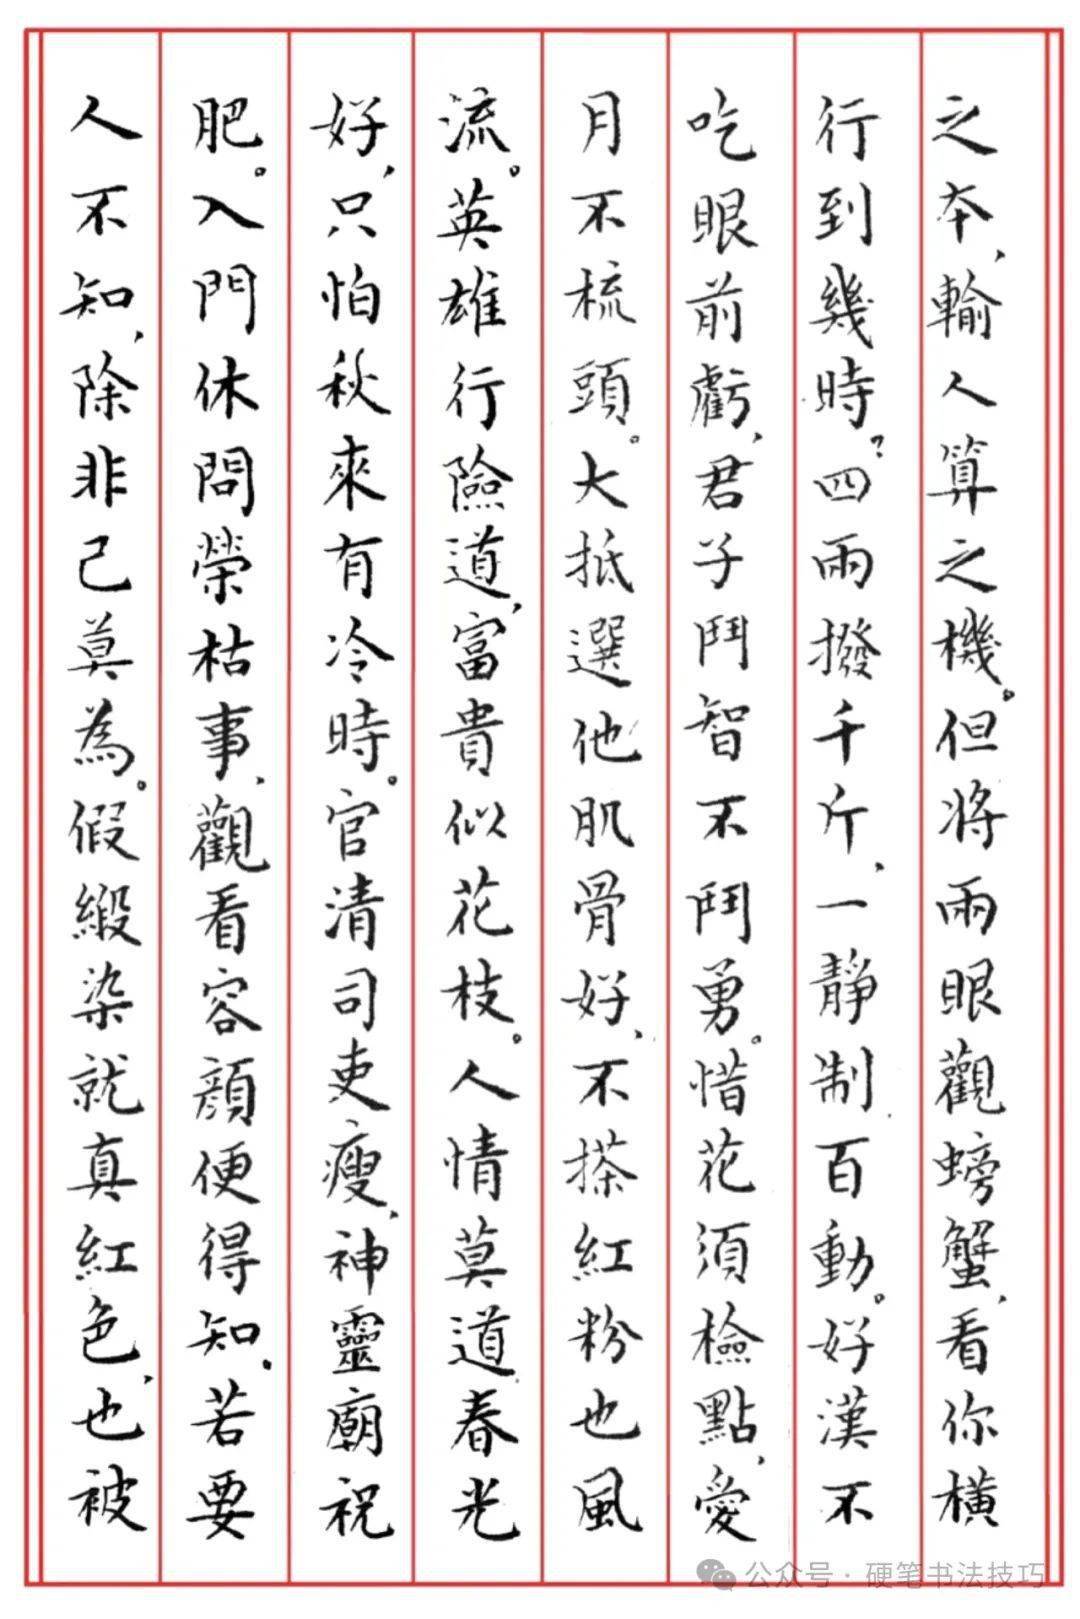 之本，輸人算之機。但将兩眼觀螃蟹，看你横
行到幾時？四兩撥千斤，一静制百動。好漢不
吃眼前虧，君子鬥智不鬥勇。惜花須檢點，愛
月不梳頭。大抵選他肌骨好，不搽紅粉也風
流。英雄行險道，富貴似花枝。人情莫道春光
好，只怕秋來有冷時。官清司吏瘦，神靈廟祝
肥。入門休問榮枯事，觀看容顔便得知。若要
人不知，除非己莫為。假緞染就真紅色，也被
公众号·硬笔书法技巧